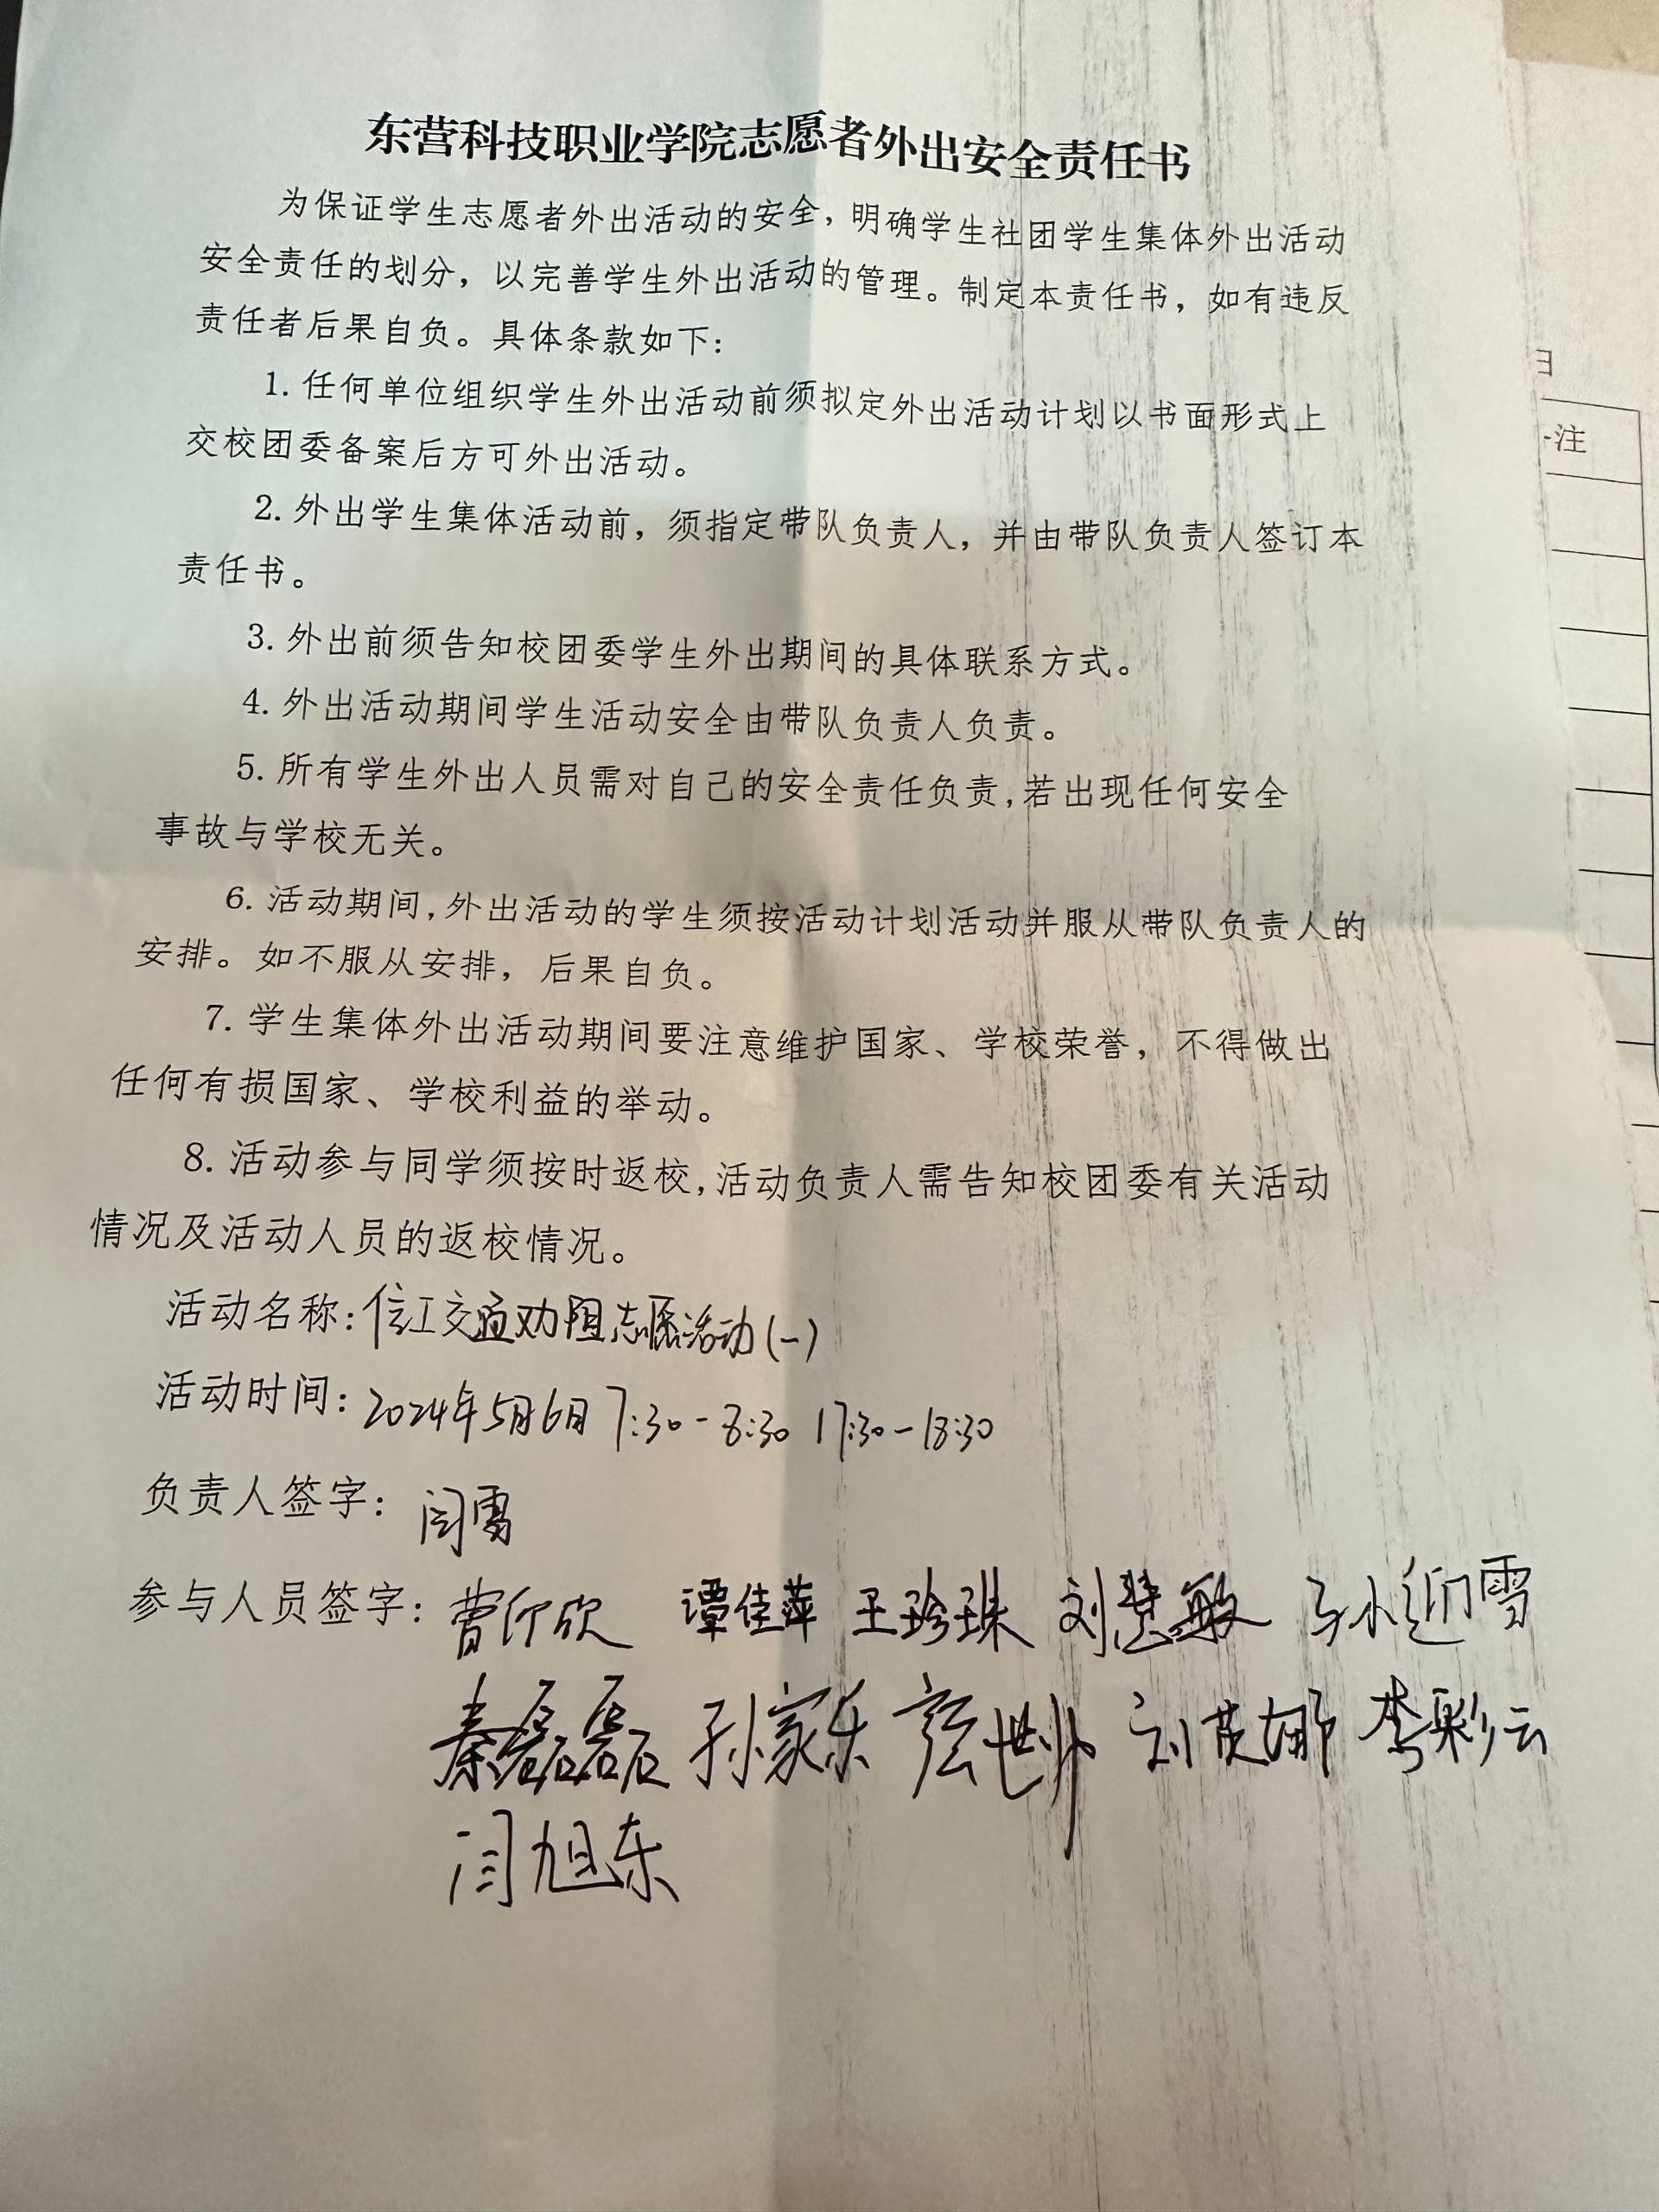 东营科技职业学院志愿者外出安全责任书
为保证学生志愿者外出活动的安全，明确学生社团学生集体外出活动
安全责任的划分，以完善学生外出活动的管理。制定本责任书，如有违反
责任者后果自负。具体条款如下：
1.任何单位组织学生外出活动前须拟定外出活动计划以书面形式上
交校团委备案后方可外出活动。
2.外出学生集体活动前，须指定带队负责人，并由带队负责人签订本
责任书。
3.外出前须告知校团委学生外出期间的具体联系方式。
4.外出活动期间学生活动安全由带队负责人负责。
5.所有学生外出人员需对自己的安全责任负责,若出现任何安全
事故与学校无关。
6.活动期间,外出活动的学生须按活动计划活动并服从带队负责人的
安排。如不服从安排，后果自负。
7.学生集体外出活动期间要注意维护国家、学校荣誉，不得做出
任何有损国家、学校利益的举动。
8.活动参与同学须按时返校,活动负责人需告知校团委有关活动
情况及活动人员的返校情况。
活动名称:信工交通劝阻志愿活动(一)
活动时间:2024年5月6日 7:30-8:30 17:30-18:30
负责人签字: 闫雪
参与人员签字: 曹欣 谭佳萍 王珍珠 刘慧敏 孙迎雪
秦磊磊 孙家乐 世帅 刘英娜 李彩云
闫旭东
注